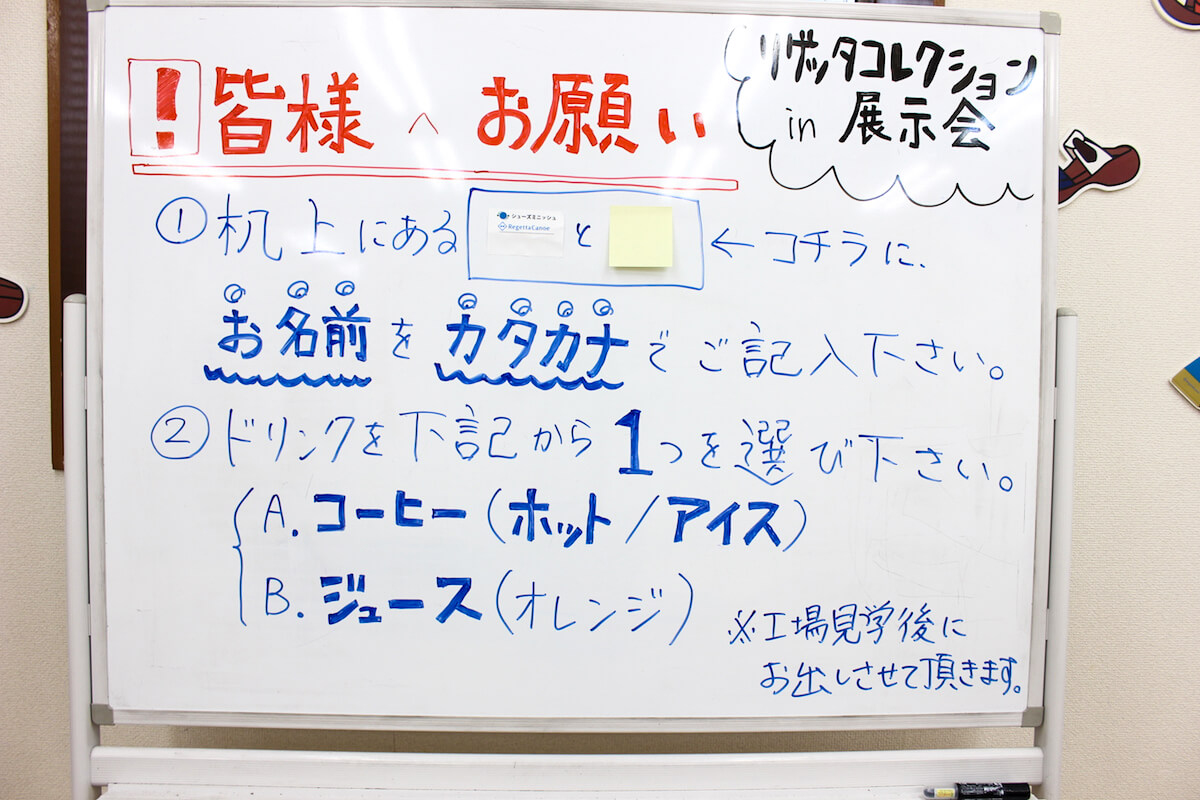 リゲッタコレクション
in 展示会
! 皆様へお願い
① 机上にある シューズミニッシュ RegettaCanoe と ←コチラに、
お名前をカタカナでご記入下さい。
② ドリンクを下記から1つを選び下さい。
A. コーヒー(ホット/アイス)
B. ジュース(オレンジ)
※工場見学後に
お出しさせて頂きます。